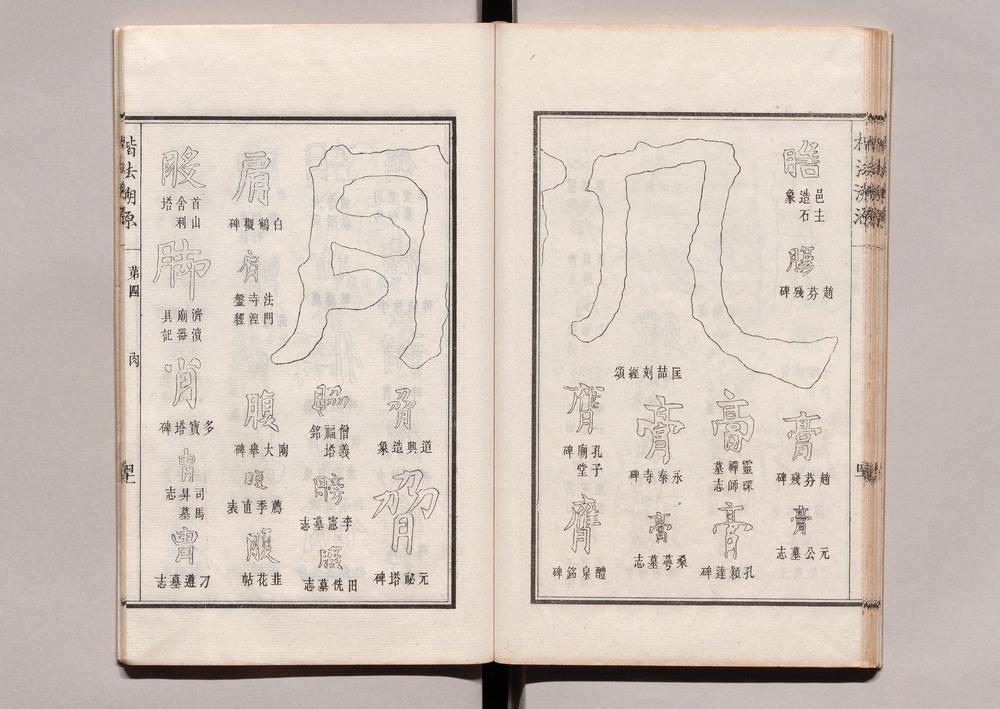 膽
邑土造石象
腸
趙芬殘碑
膏
趙芬殘碑
膏
元公墓志
膏
靈琛禪師墓志
膏
孔穎達碑
匡喆刻經頌
膏
永泰寺碑
膏
墓志
膺
孔子廟堂碑
膺
醴泉銘碑
脅
道興造象
脅
元祕塔碑
脇
僧義福塔銘
膀
李憲墓志
田侁墓志
肩
白鶴觀碑
肩
法門寺湼盤經
腹
陶大舉碑
腹
薦季直表
腹
韭花帖
股
首山舍利塔
肺
濟瀆廟器具記
肖
多寶塔碑
胄
司馬昇墓志
胄
刁遵墓志
楷法溯源
第四
肉